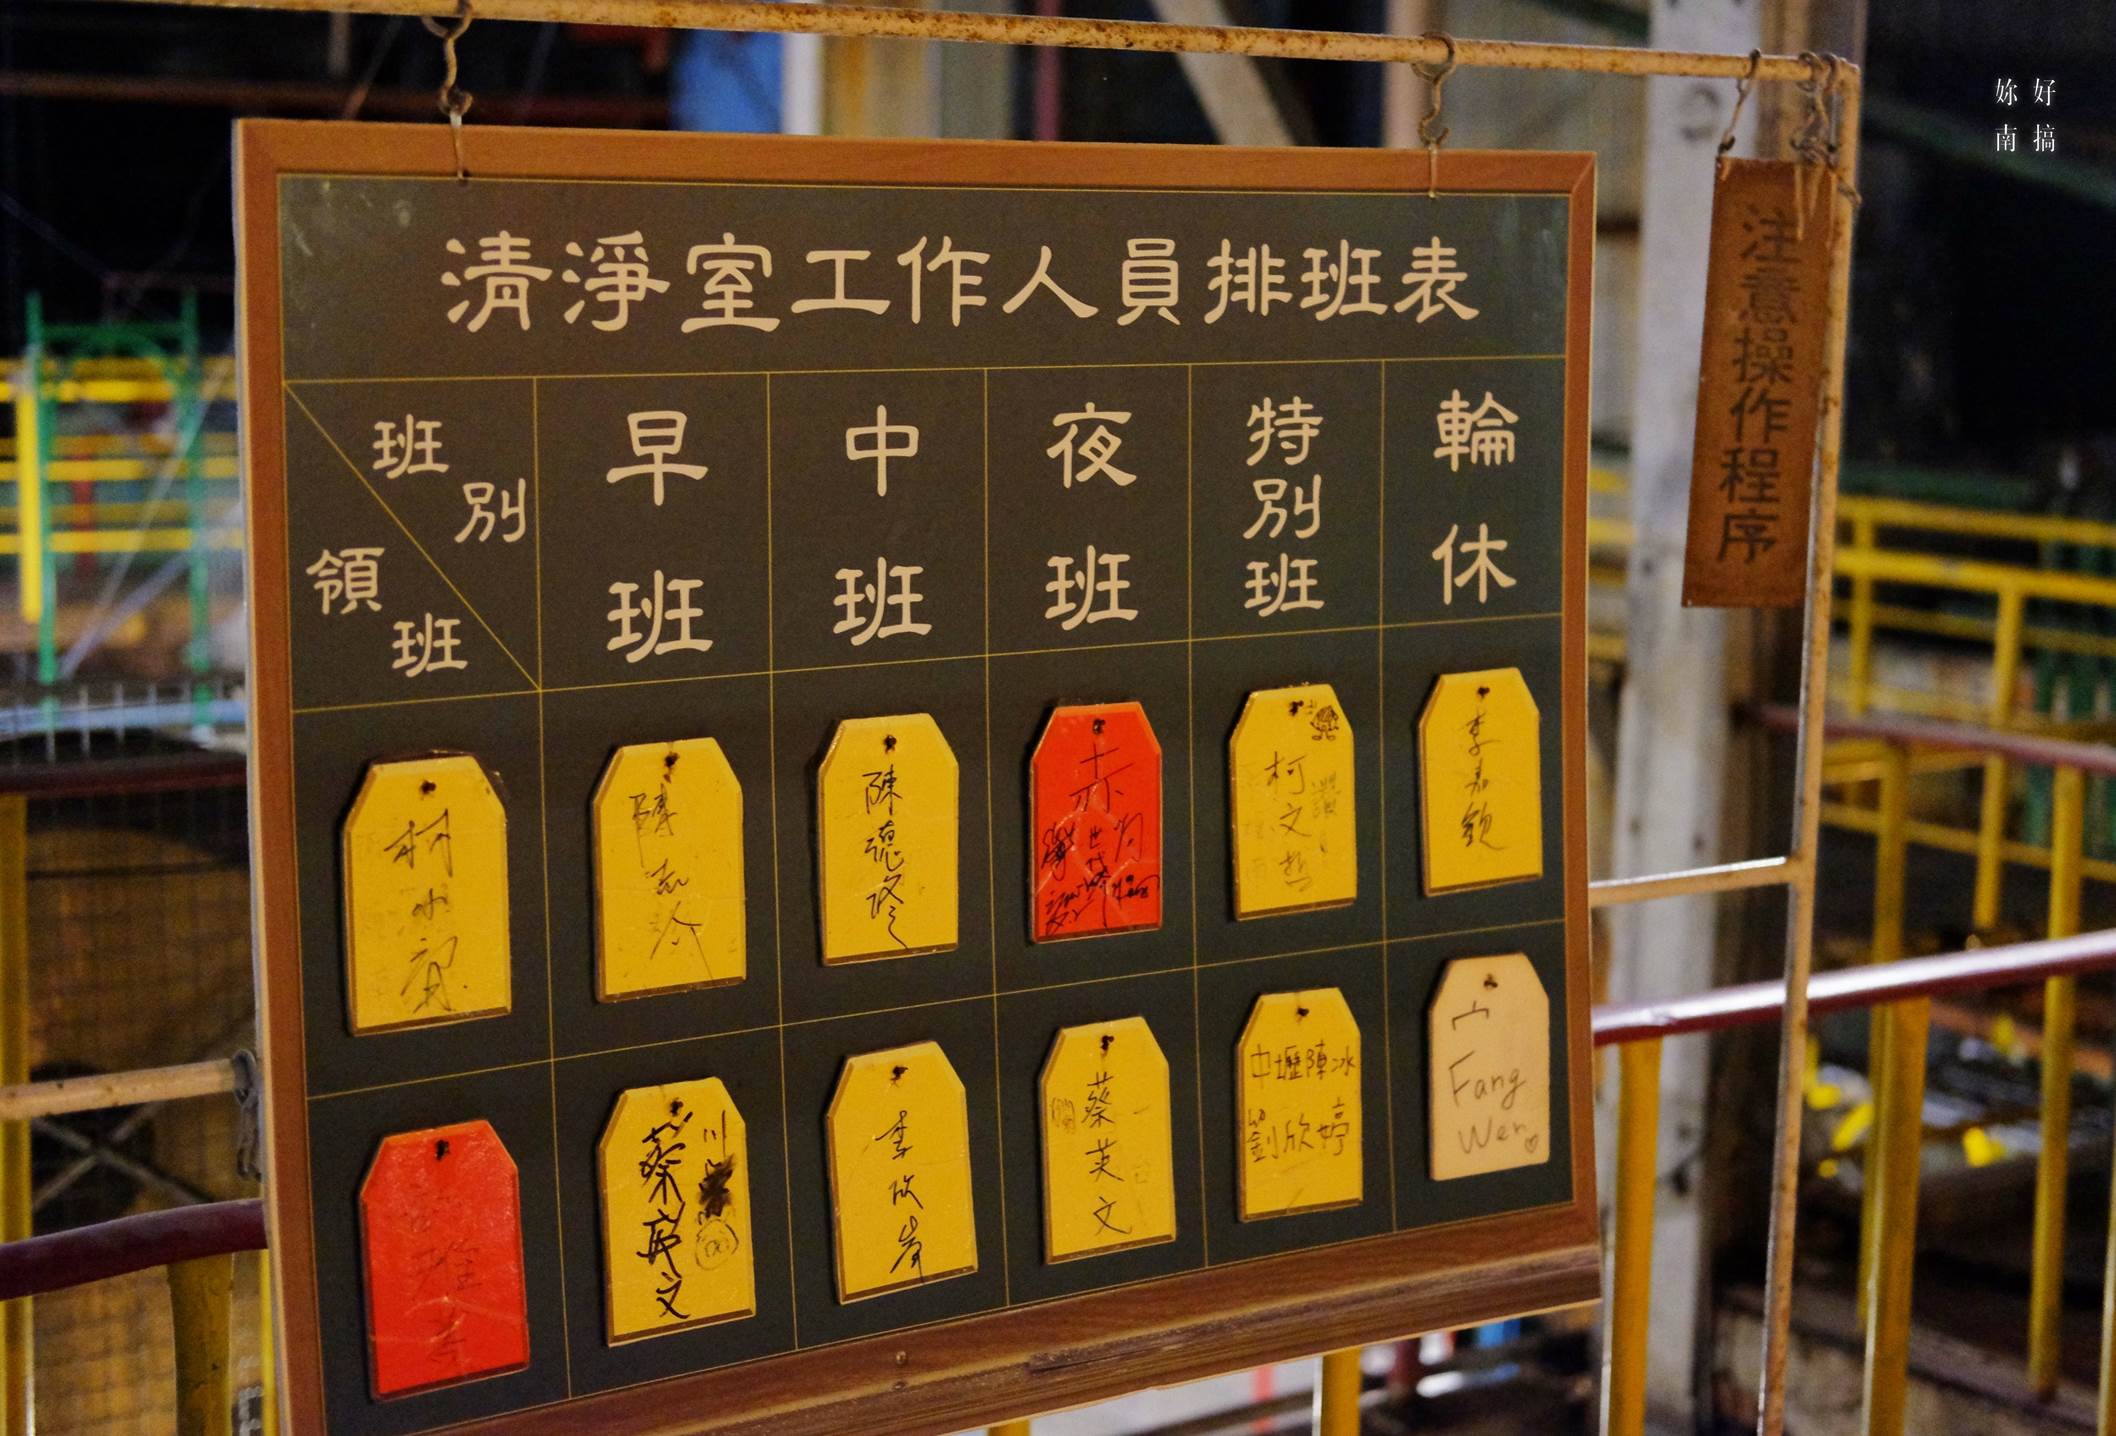 妳好
南搞
清淨室工作人員排班表
注意操作程序
班別
領班
早班
中班
夜班
特別班
輪休
陳德修
柯文哲
李嘉欽
蔡英文
李欣岸
中壢陳冰
劉欣婷
宀
Fang
Wen